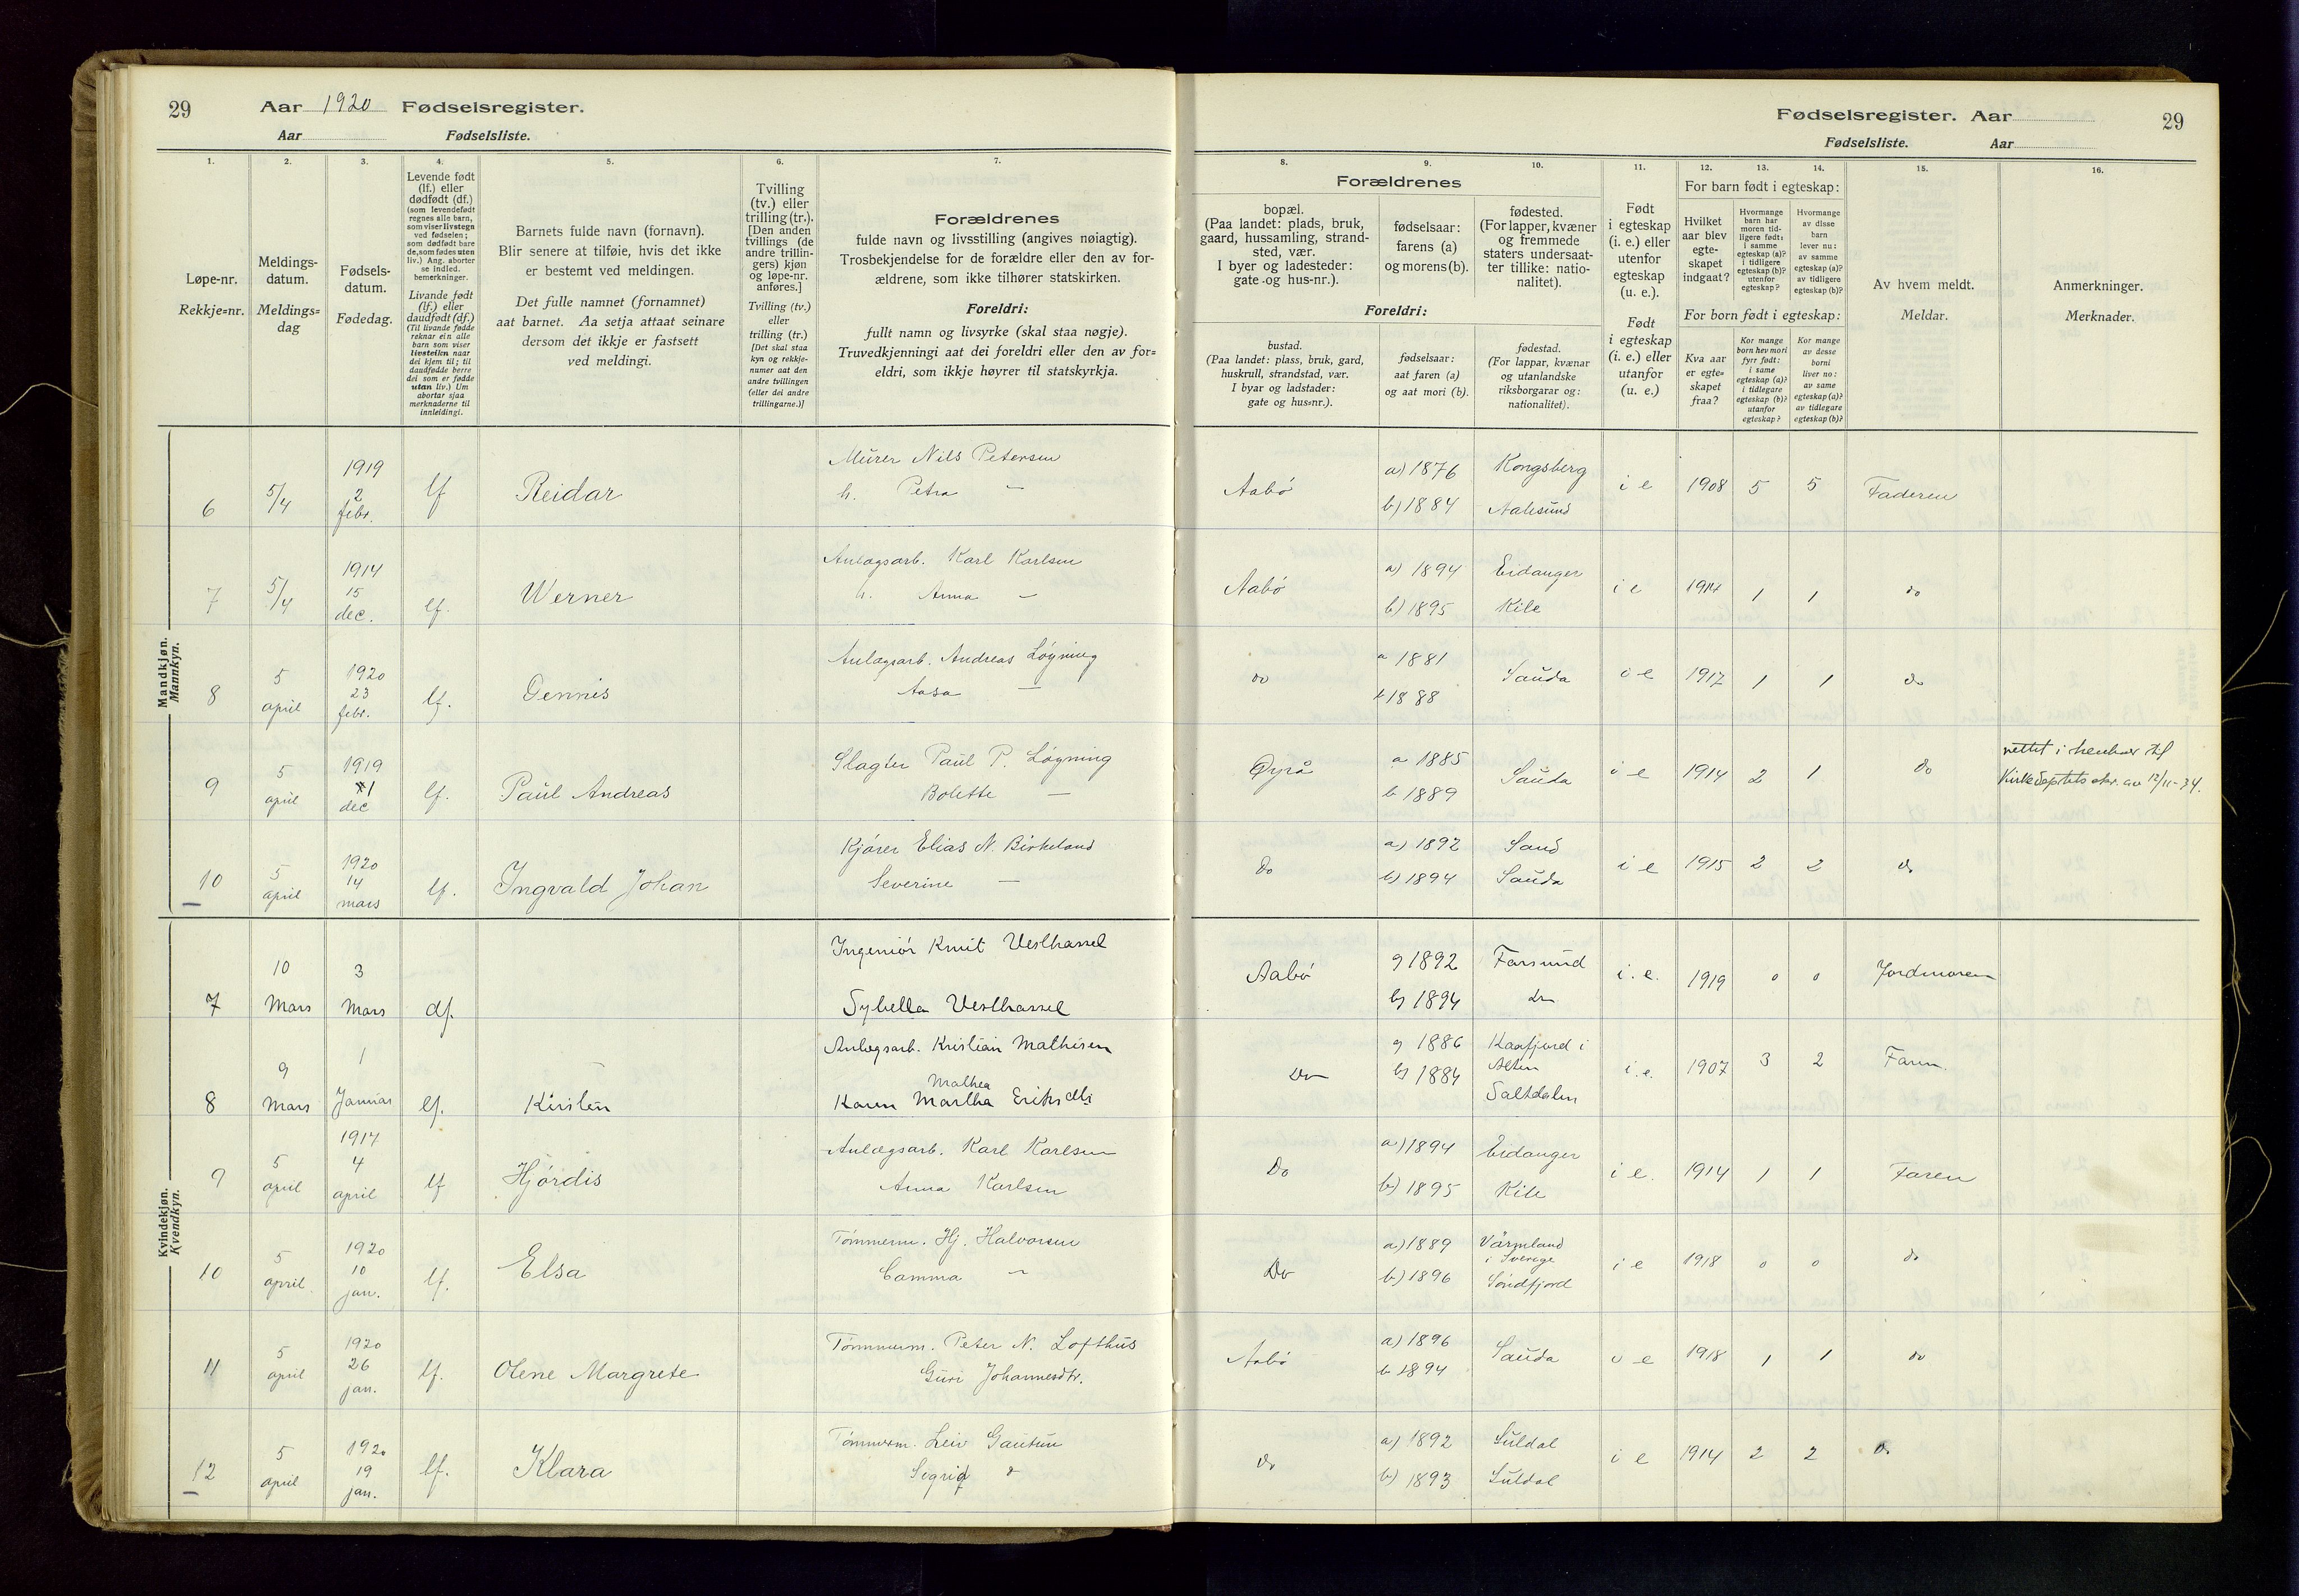 29 Aar 1920 Fødselsregister.
Aar Fødselsliste.
Fødselsregister. Aar 29
Fødselsliste. Aar
1. 2. 3. 4. 5. 6. 7. 8. 9. 10. 11. 12. 13. 14. 15. 16.
Løpe-nr.
Rekkje=nr.
Meldings-
datum.
Meldings=
dag
Fødsels-
datum.
Fødedag.
Levende født
(lf.) eller
dødfødt (df.)
(som levendefødt
regnes alle barn,
som viser livstegn
ved fødselen;
som dødfødt bare
de, som fødes uten
liv.) Ang. aborter
se indled.
bemerkninger.
Livande født
(lf.) eller
daudfødt (df.)
(Til livande fødde
reknar ein alle
barn som viser
livsteiken naar
dei kjem til; til
daudfødde berre
dei som er fødde
utan liv.) Um
abortar sjaa
merknaderne til
innleidingi.
Barnets fulde navn (fornavn).
Blir senere at tilføie, hvis det ikke
er bestemt ved meldingen.
Det fulle namnet (fornamnet)
aat barnet. Aa setja attaat seinare
dersom det ikkje er fastsett
ved meldingi.
Tvilling
(tv.) eller
trilling (tr.).
[Den anden
tvillings (de
andre trillin-
gers) kjøn
og løpe-nr.
anføres.]
Tvilling (tv.)
eller
trilling (tr.)
[Det skal staa
kyn og rekkje-
numer aat den
andre tvillingen
(eller dei andre
trillingarne.)]
Forældrenes
fulde navn og livsstilling (angives nøiagtig).
Trosbekjendelse for de forældre eller den av for-
ældrene, som ikke tilhører statskirken.
Foreldri:
fullt namn og livsyrke (skal staa nøgje).
Truvedkjenningi aat dei foreldri eller den av for=
eldri, som ikkje høyrer til statskyrkja.
Forældrenes
bopæl.
(Paa landet: plads, bruk,
gaard, hussamling, strand-
sted, vær.
I byer og ladesteder:
gate og hus-nr.).
fødselsaar:
farens (a)
og morens (b).
fødested.
(For lapper, kvæner
og fremmede
staters undersaat-
ter tillike: natio-
nalitet).
Foreldri:
bustad.
(Paa landet: plass, bruk, gard,
huskrull, strandstad, vær.
I byar og ladstader:
gate og hus=nr.).
fødselsaar:
aat faren (a)
og aat mori (b).
fødestad.
(For lappar, kvænar
og utanlandske
riksborgarar og:
nationalitet).
Født
i egteskap
(i. e.) eller
utenfor
egteskap
(u. e.).
Født
i egteskap
(i. e.) eller
utanfor
(u. e.)
For barn født i egteskap:
Hvilket
aar blev
egte-
skapet
indgaat?
Hvormange
barn har
moren tid-
ligere født:
i samme
egteskap (a)?
i tidligere
egteskap (b)?
utenfor
egteskap?
Hvormange
av disse
barn
lever nu:
av samme
egteskap (a)?
av tidligere
egteskap (b)?
For born født i egteskap:
Kva aar
er egte=
skapet
fraa?
Kor mange
born hev mori
fyrr født:
i same
egteskap (a)?
i tidlegare
egteskap (b)?
utanfor
egteskap?
Kor mange
av desse
borni
liver no:
av same
egteskap (a)?
av tidlegare
egteskap (b)?
Av hvem meldt.
Meldar.
Anmerkninger.
Merknader.
Mandkjøn.
Mannkyn.
6 5/4 1919 2 febr. lf Reidar
Murer Nils Petersen
h. Petra —
Aabö a) 1876 Kongsberg
b) 1884 Aalesund
i e 1908 5 5 Faderen
7 5/4 1914 15 dec. lf. Werner
Anlægsarb. Karl Karlsen
h. Anna —
Aabö a) 1894 Eidanger
b) 1895 Kile
i e 1914 1 1 do
8 5 april 1920 23 febr. lf. Gennis
Anlægsarb. Andreas Löyning
Aasa —
do a 1881 Sauda
b 1888
i e 1917 1 1 do
9 5 april 1919 1 dec lf. Paul Andreas
Slagter Paul P. Löyning
Bolette —
Øyrå a 1885 Sauda
b 1889
i e 1914 2 1 do
rettet i henhold til
Kirkedeptets skr. av 12/11-34.
10 5 april 1920 14 mars lf. Ingvald Johan
Kjörer Elias N. Birkeland
Severine —
Do a) 1892 Sand
b) 1894 Sauda
i e 1915 2 2 do
Kvindekjøn.
Kvendkyn.
7 10 Mars 3 Mars df.
Ingeniör Knut Vesthassel
Sybella Vesthassel
Aabö a) 1892 Farsund
b) 1894 do
i. e. 1919 0 0 Jordmoren
8 9 Mars 1 Januar lf. Kirsten
Anlægsarb. Kristian Mathisen
Mathea
Karen Martha Eriksdtr
Do a) 1886 Kaafjord i
Alten
b) 1884 Saltdalen
i. e. 1907 3 2 Faren.
9 5 april 1917 4 april lf Hjördis
Anlægsarb. Karl Karlsen
Anna Karlsen
Do a) 1894 Eidanger
b) 1895 Kile
i e. 1914 1 1 Faren
10 5 april. 1920 10 jan. lf. Elsa
Tömmerm. Hj. Halvorsen
Camma —
Do a) 1889 Värmland
i Sverige
b) 1896 Söndfjord
i e 1918 0 0 do
11 5 april 1920 26 jan. lf. Olene Margrete
Tömmerm. Peter N. Lofthus
Guri Johannesdtr.
Aabö a) 1896 Sauda
b 1894
u e 1918 1 1 do
12 5 april 1920 19 jan. lf. Klara
Tömmerm. Leiv Gautun
Segrid
do a) 1892 Suldal
b) 1893 Suldal
i e 1914 2 2 do